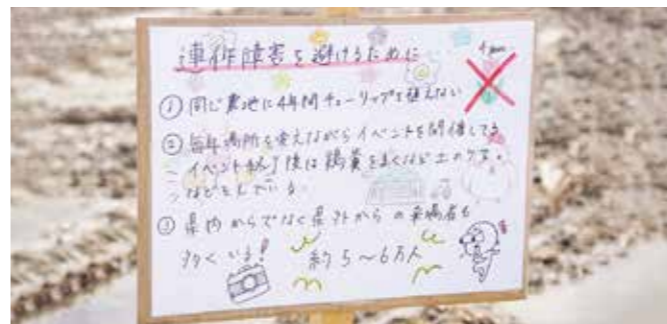 連作障害を避けるために
4年間
① 同じ農地に4年間チューリップを植えない
② 毎年場所を変えながらイベントを開催してる
イベント終了後は鶏糞をまくなど土のケア。
などをしている。
③ 県内からでなく県外からの来場者も
多くいる!
約5〜6万人